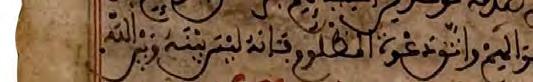 واتق دعوة المظلوم فإنه ليس بينه وبين الله